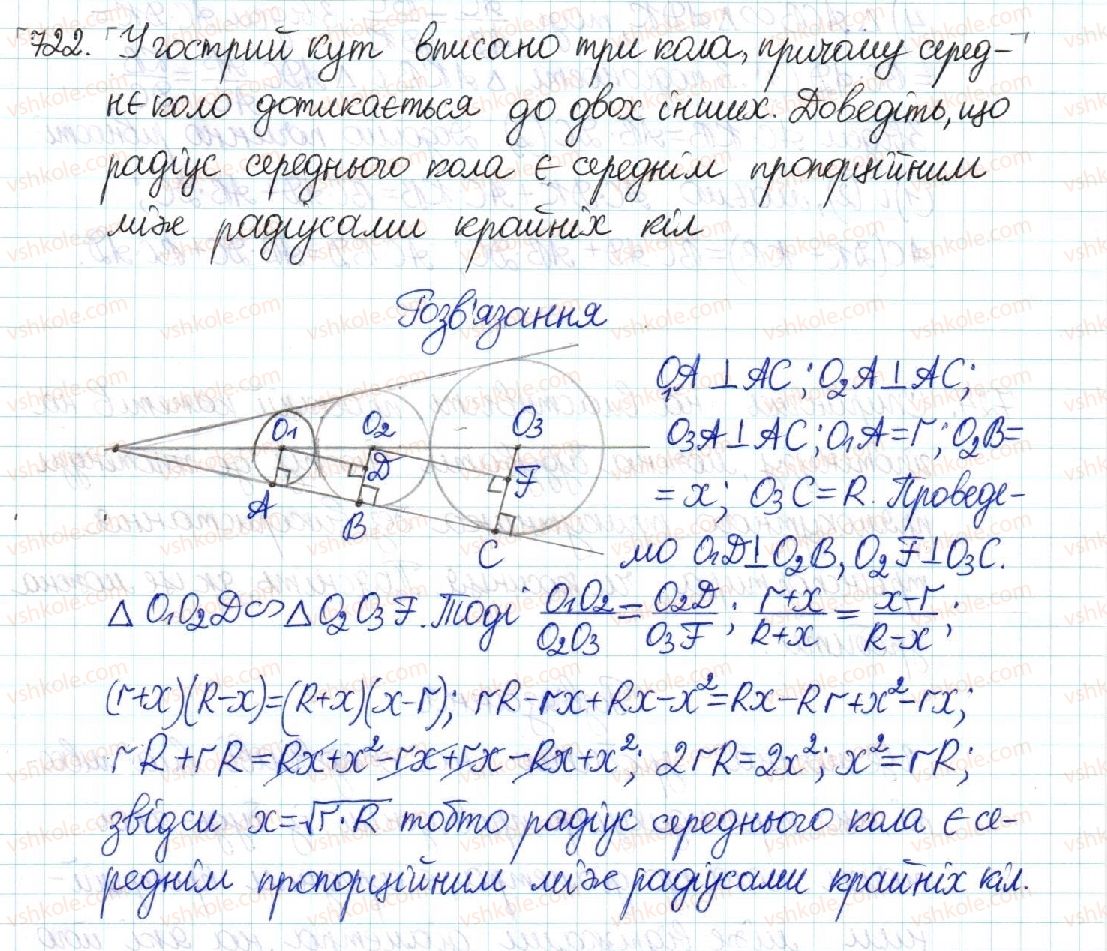 722. У гострий кут вписано три кола, причому серед-
нє коло дотикається до двох інших. Доведіть, що
радіус середнього кола є середнім пропорційним
між радіусами крайніх кіл
Розв'язання
O₁A ⊥ AC; O₂A ⊥ AC;
O₃A ⊥ AC; O₁A = r; O₂B =
= x; O₃C = R. Проведе-
мо O₁D ⊥ O₂B, O₂F ⊥ O₃C.
O₁ O₂ O₃
D F
A B C
△ O₁O₂D ∽ △ O₂O₃F. Тоді O₁O₂/O₂O₃ = O₂D/O₃F; r+x/R+x = x-r/R-x;
(r+x)(R-x)=(R+x)(x-r); rR-rx+Rx-x²=Rx-Rr+x²-rx;
rR+rR=Rx+x²-rx+rx-Rx+x²; 2rR=2x²; x²=rR;
звідси x=√r·R тобто радіус середнього кола є се-
реднім пропорційним між радіусами крайніх кіл.
vshkole.com